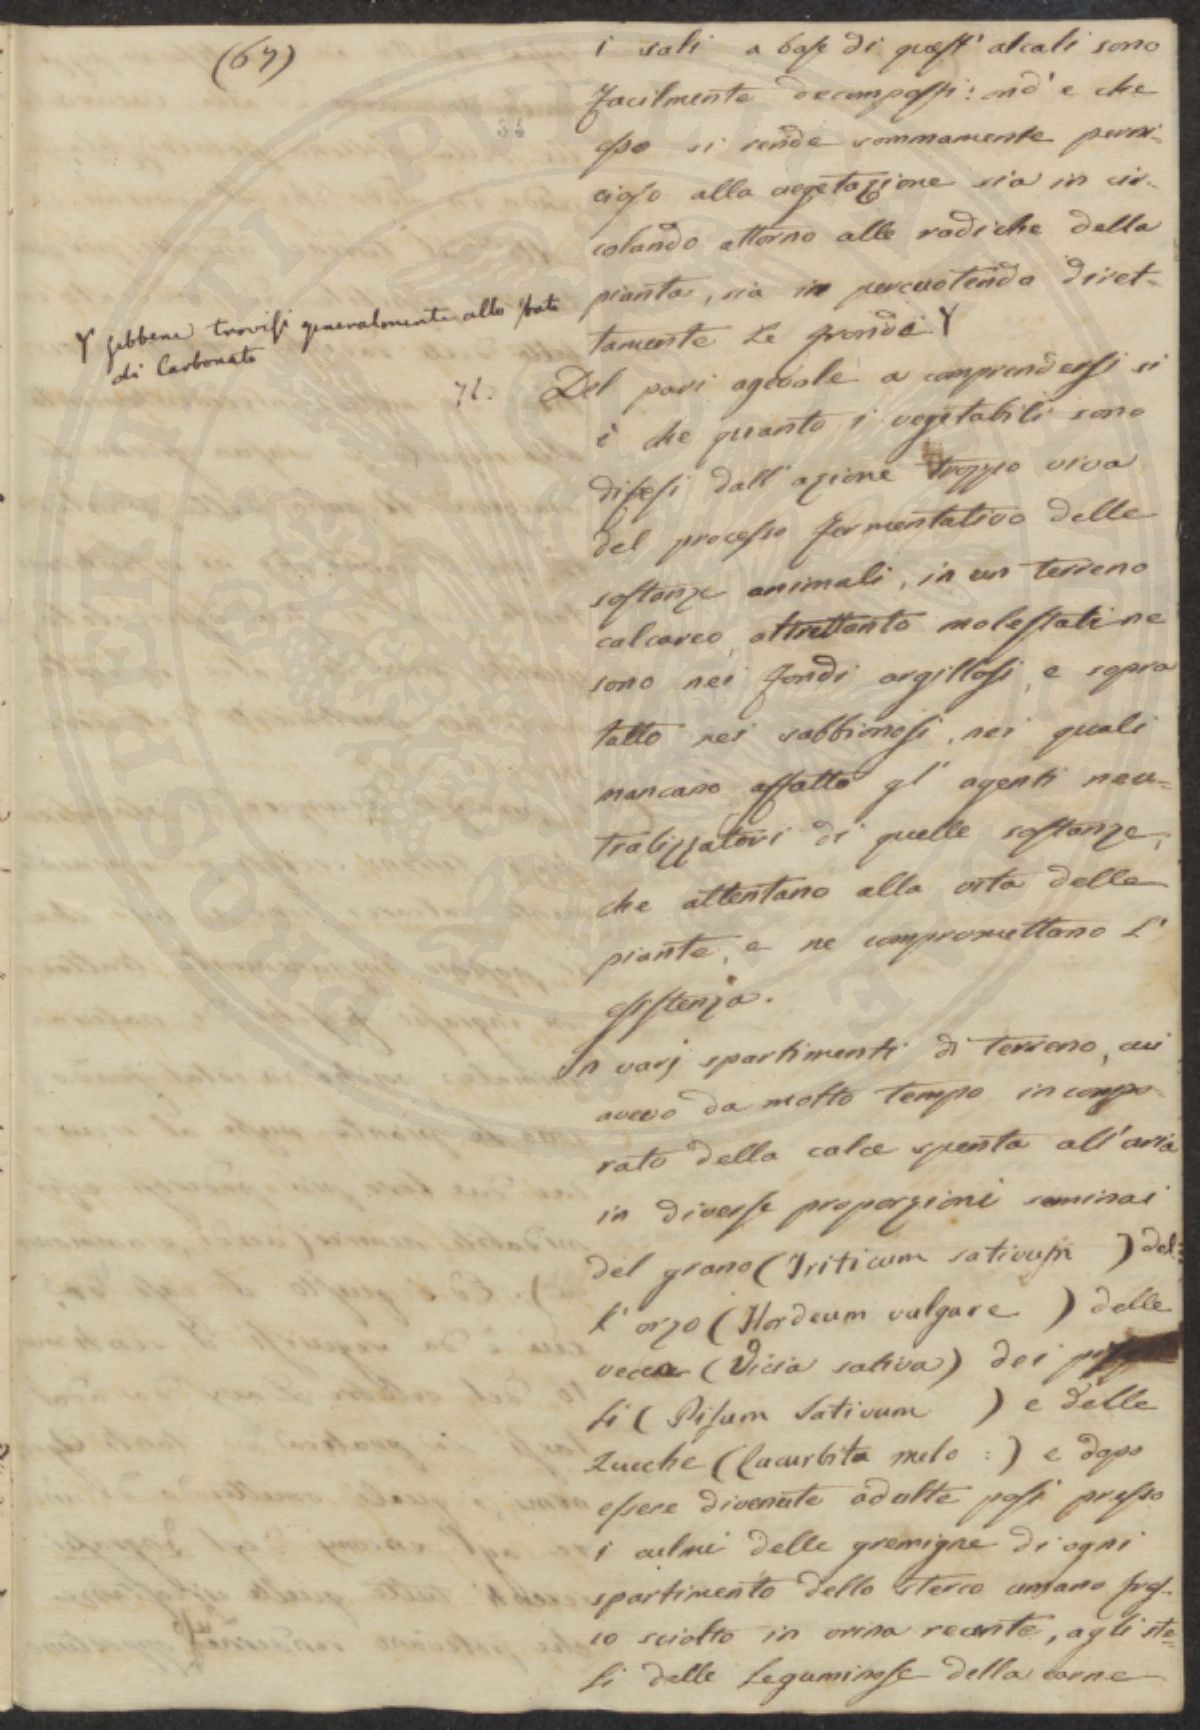 (67)
i sali a base di quest' alcali sono
facilmente decomposti: ond' e che
esso si rende sommamente perni-
cioso alla vegetazione sia in cir-
colando attorno alle radiche della
pianta, sia in percuotendo diret-
tamente le fronde. Y
Y sebbene trovisi generalmente allo stato
di Carbonato
71. Del pari agevole a comprendersi si
è che quanto i vegetabili sono
difesi dall' azione troppo viva
del processo fermentativo delle
sostanze animali, in un terreno
calcareo, altrettanto molestati ne
sono nei fondi argillosi, e sopra
tutto nei sabbionosi, nei quali
mancano affatto gl' agenti neu-
tralizzatori di quelle sostanze,
che attentano alla vita delle
piante, e ne compromettono l'
esistenza.
In varj spartimenti di terreno, cui
avevo da molto tempo incorpo-
rato della calce spenta all' aria
in diverse proporzioni seminai
del grano (Triticum sativum ) del-
l' orzo (Hordeum vulgare ) delle
vecce (Vicia sativa) dei
li (Pisum Sativum ) e delle
zucche (Cucurbita melo : ) e dopo
essere divenute adulte posi presso
i culmi delle gremigne di ogni
spartimento dello sterco umano fres-
co sciolto in orina recente, agli ste-
li delle Leguminose della carne